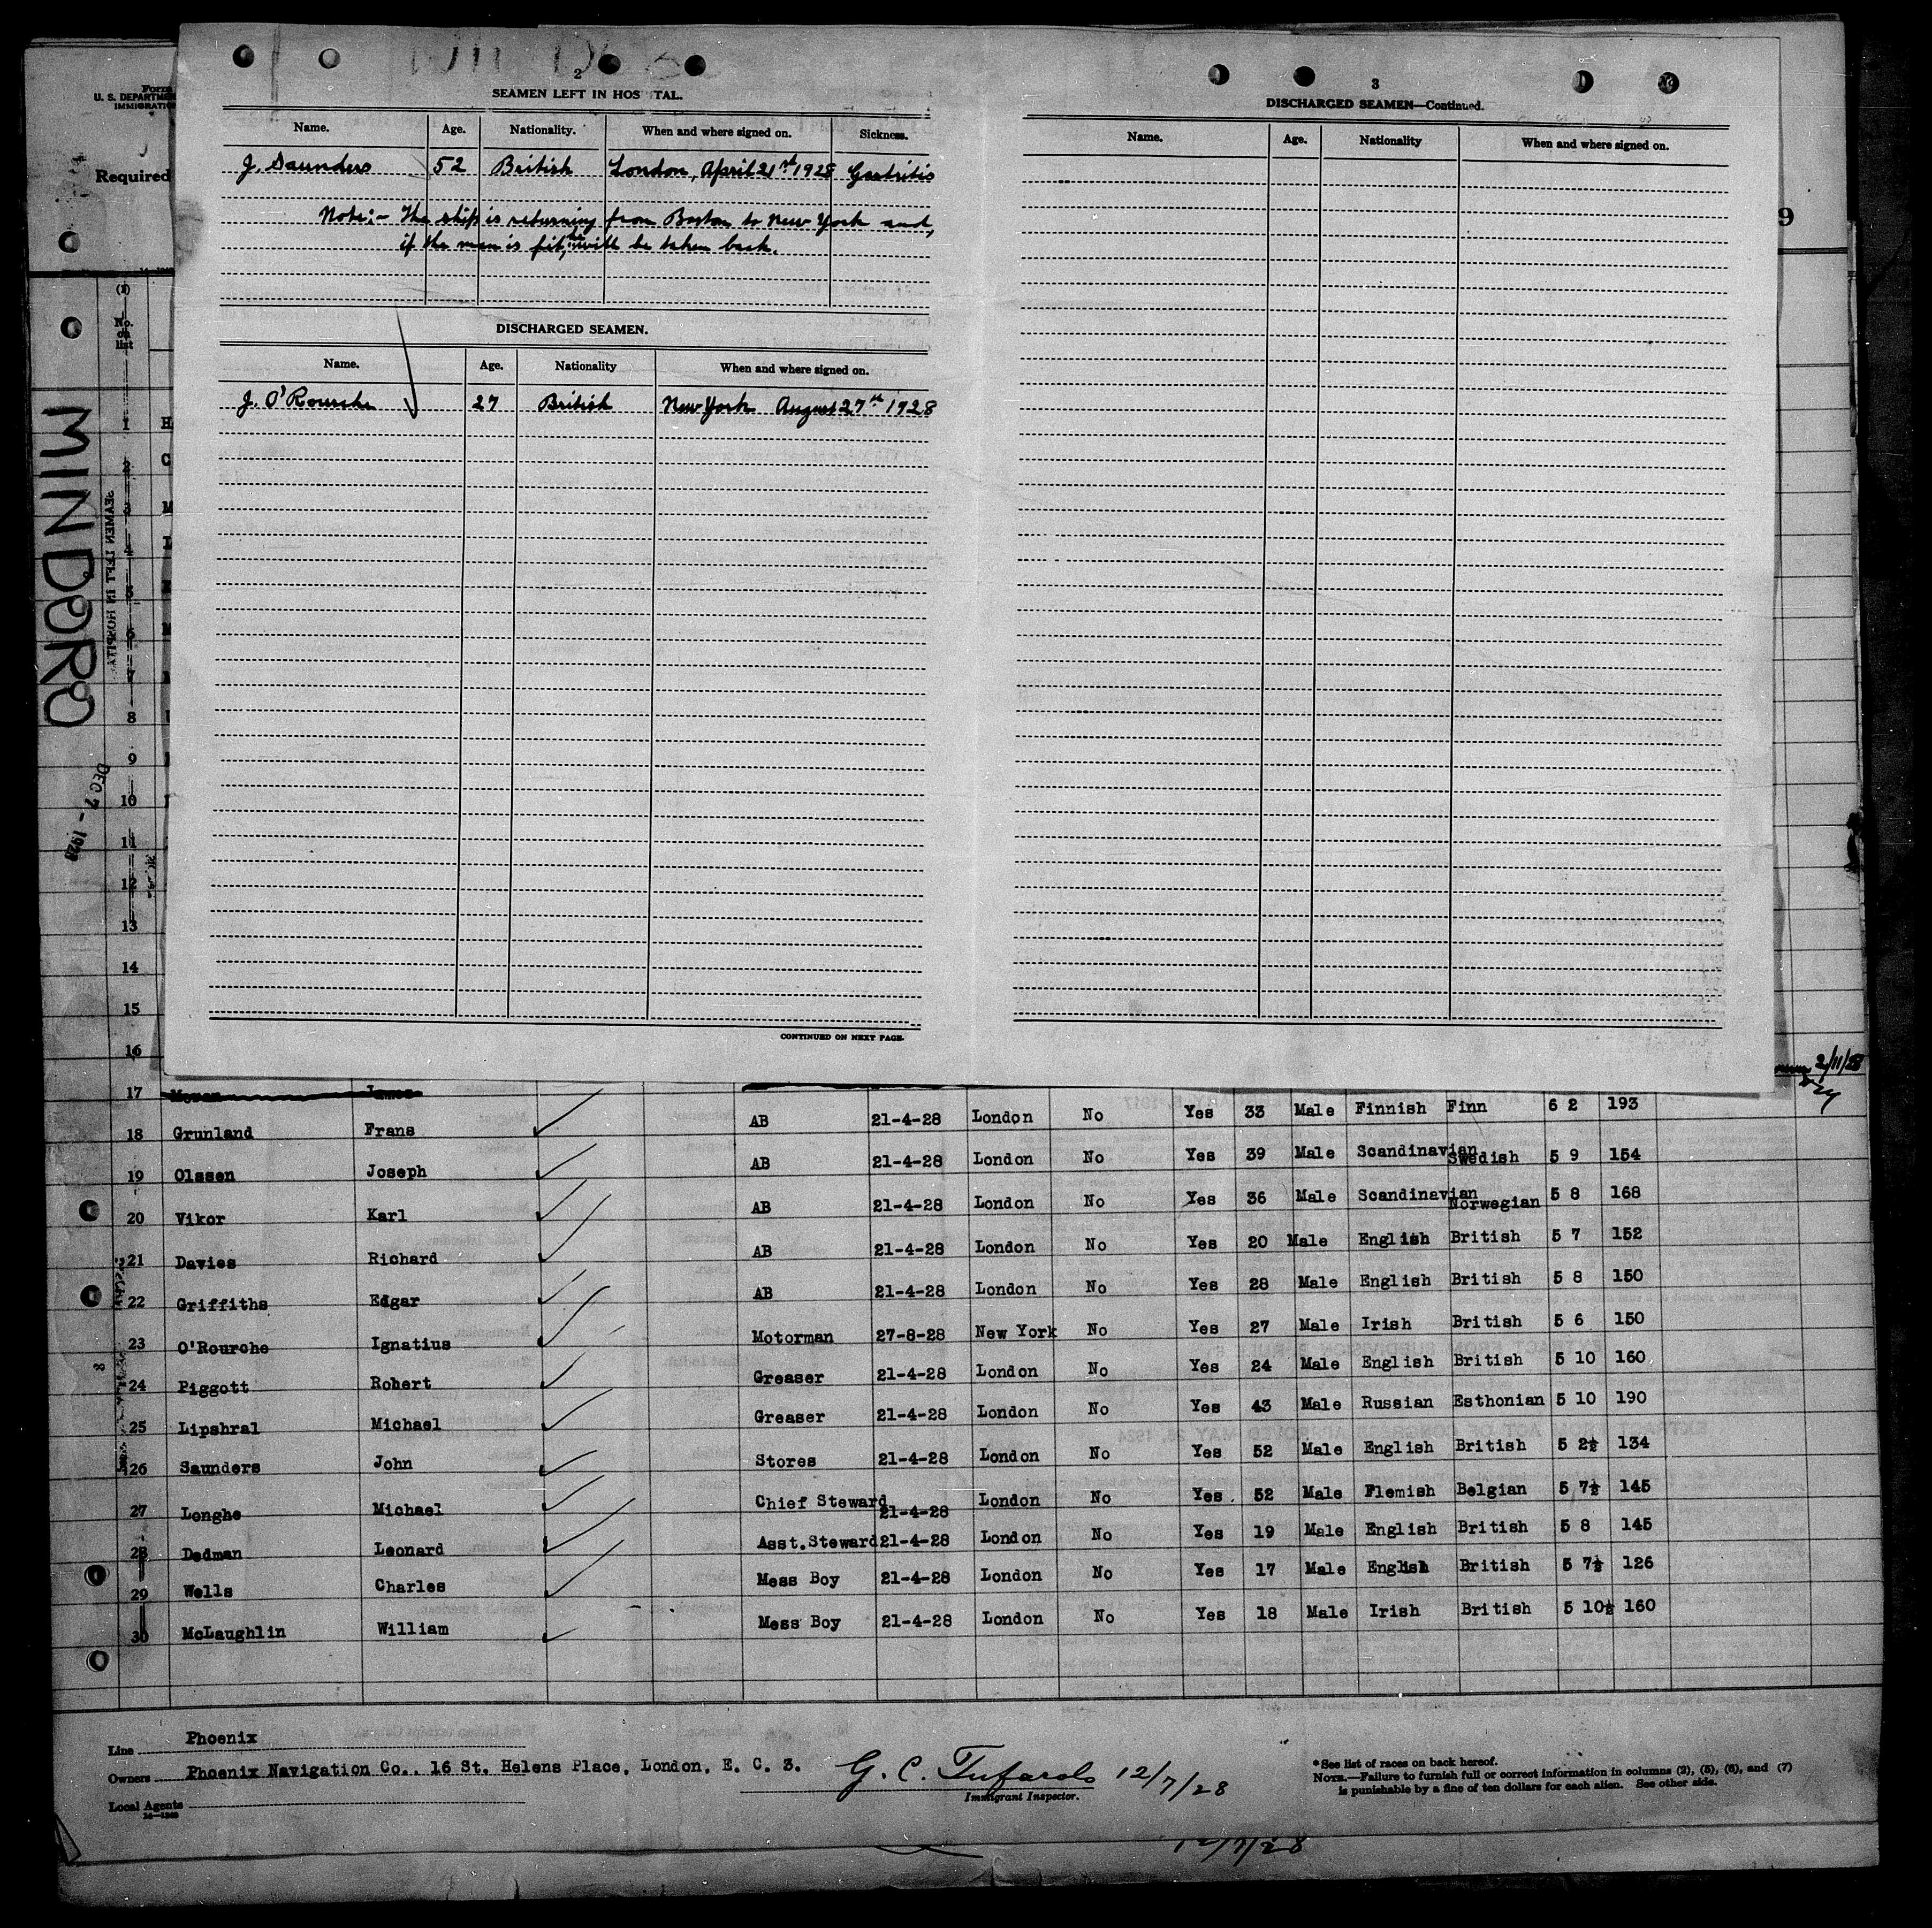 2
SEAMEN LEFT IN HOS TAL.
Name. Age. Nationality. When and where signed on. Sickness.
J. Saunders 52 British London, April 21st 1928 Gastritis
Note:- The ship is returning from Boston to New York and,
if the man is fit, he will be taken back.
DISCHARGED SEAMEN.
Name. Age. Nationality When and where signed on.
J. O'Rourche 27 British New York August 27th 1928
CONTINUED ON NEXT PAGE.
3
DISCHARGED SEAMEN—Continued.
Name. Age. Nationality When and where signed on.
Form
U. S. DEPARTME
IMMIGRATIO
Required
9
(1)
No.
on
list
MINDORO
SEAMEN LEFT IN HOSPITA
DEC 7 - 1928
1 H
2 C
3 M
4
5
6
7
8
9
10
11
12
13
14
15
16
2/11/28
17 Moran James
18 Grunland Frans AB 21-4-28 London No Yes 33 Male Finnish Finn 6 2 193
19 Olssen Joseph AB 21-4-28 London No Yes 39 Male Scandinavian Swedish 5 9 154
20 Vikor Karl AB 21-4-28 London No Yes 36 Male Scandinavian Norwegian 5 8 168
21 Davies Richard AB 21-4-28 London No Yes 20 Male English British 5 7 152
22 Griffiths Edgar AB 21-4-28 London No Yes 28 Male English British 5 8 150
23 O'Rourche Ignatius Motorman 27-8-28 New York No Yes 27 Male Irish British 5 6 150
24 Piggott Robert Greaser 21-4-28 London No Yes 24 Male English British 5 10 160
25 Lipshral Michael Greaser 21-4-28 London No Yes 43 Male Russian Esthonian 5 10 190
26 Saunders John Stores 21-4-28 London No Yes 52 Male English British 5 2½ 134
27 Longhe Michael Chief Steward 21-4-28 London No Yes. 52 Male Flemish Belgian 5 7½ 145
28 Dedman Leonard Asst.Steward 21-4-28 London No Yes 19 Male English British 5 8 145
29 Wells Charles Mess Boy 21-4-28 London No Yes 17 Male English British 5 7½ 126
30 McLaughlin William Mess Boy 21-4-28 London No Yes 18 Male Irish British 5 10½ 160
Line Phoenix
Owners Phoenix Navigation Co., 16 St. Helens Place, London, E. C. 3.
Local Agents
G. C. Tufarolo 12/7/28
Immigrant Inspector.
* See list of races on back hereof.
NOTE.—Failure to furnish full or correct information in columns (2), (5), (6), and (7)
is punishable by a fine of ten dollars for each alien. See other side.
12/7/28